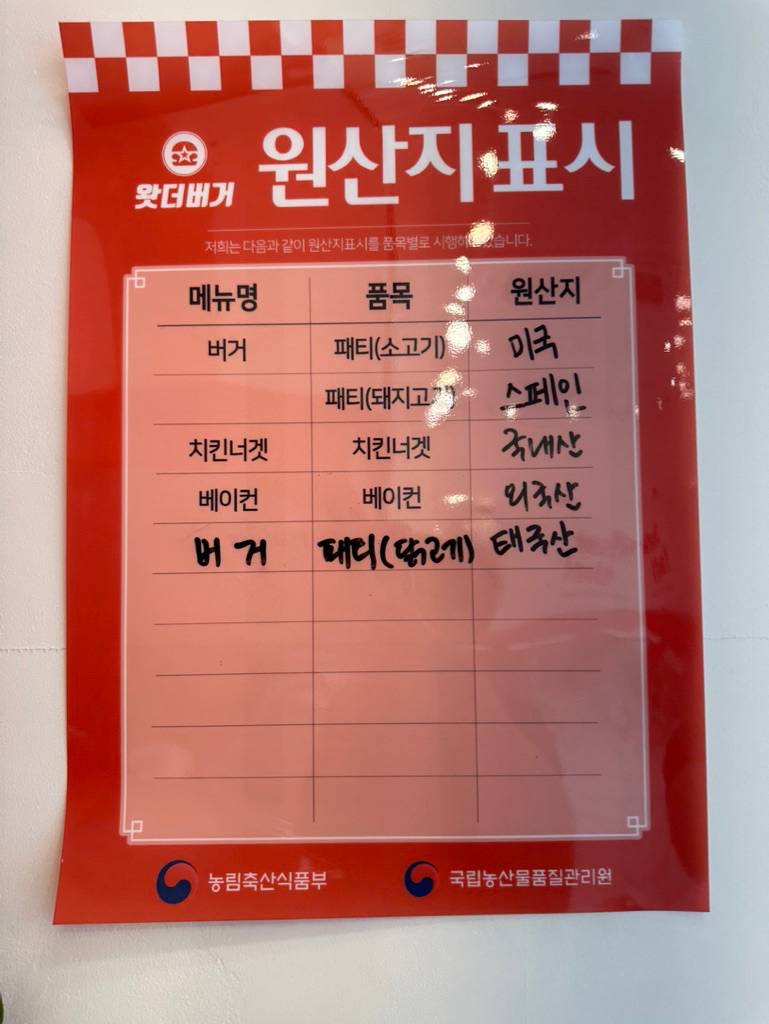 왓더버거
원산지표시
저희는 다음과 같이 원산지표시를 품목별로 시행하고 있습니다.
메뉴명 품목 원산지
버거 패티(소고기) 미국
패티(돼지고기) 스페인
치킨너겟 치킨너겟 국내산
베이컨 베이컨 외국산
버거 패티(닭고기) 태국산
농림축산식품부 국립농산물품질관리원